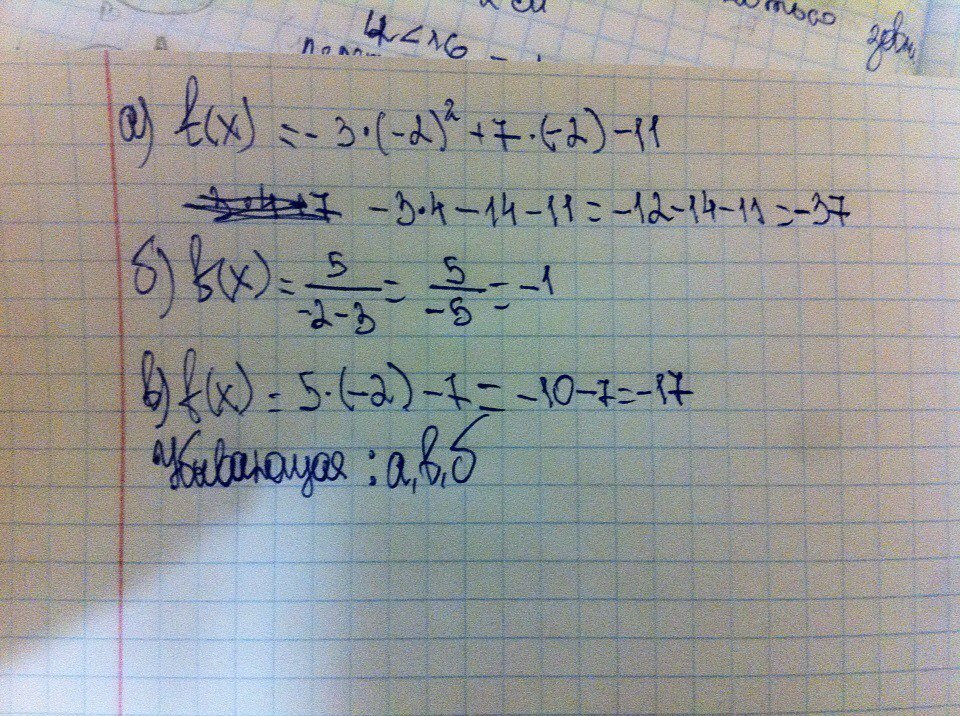 4<16
а) f(x) = -3·(-2)²+7·(-2)-11
-3·4-14-11=-12-14-11=-37
б) f(x) = 5/(-2-3) = 5/-5 = -1
в) f(x) = 5·(-2)-7=-10-7=-17
Убывающая: а,в,б